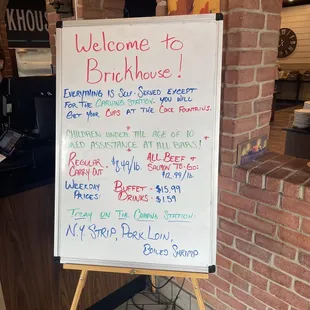 HOUSE
Welcome to
Brickhouse!
EVERYTHING IS SELF-SERVED EXCEPT
FOR THE CARVING STATION. YOU WILL
GET YOUR CUPS AT THE COKE FOUNTAINS.
CHILDREN UNDER THE AGE OF 10
NEED ASSISTANCE AT ALL BARS!
REGULAR CARRY-OUT $8.49/lb.
ALL BEEF &
SALMON TO-GO:
$12.99/lb
WEEKDAY PRICES:
BUFFET - $15.99
DRINKS - $1.59
TODAY ON THE CARVING STATION:
N.Y. STRIP, PORK LOIN,
BOILED SHRIMP